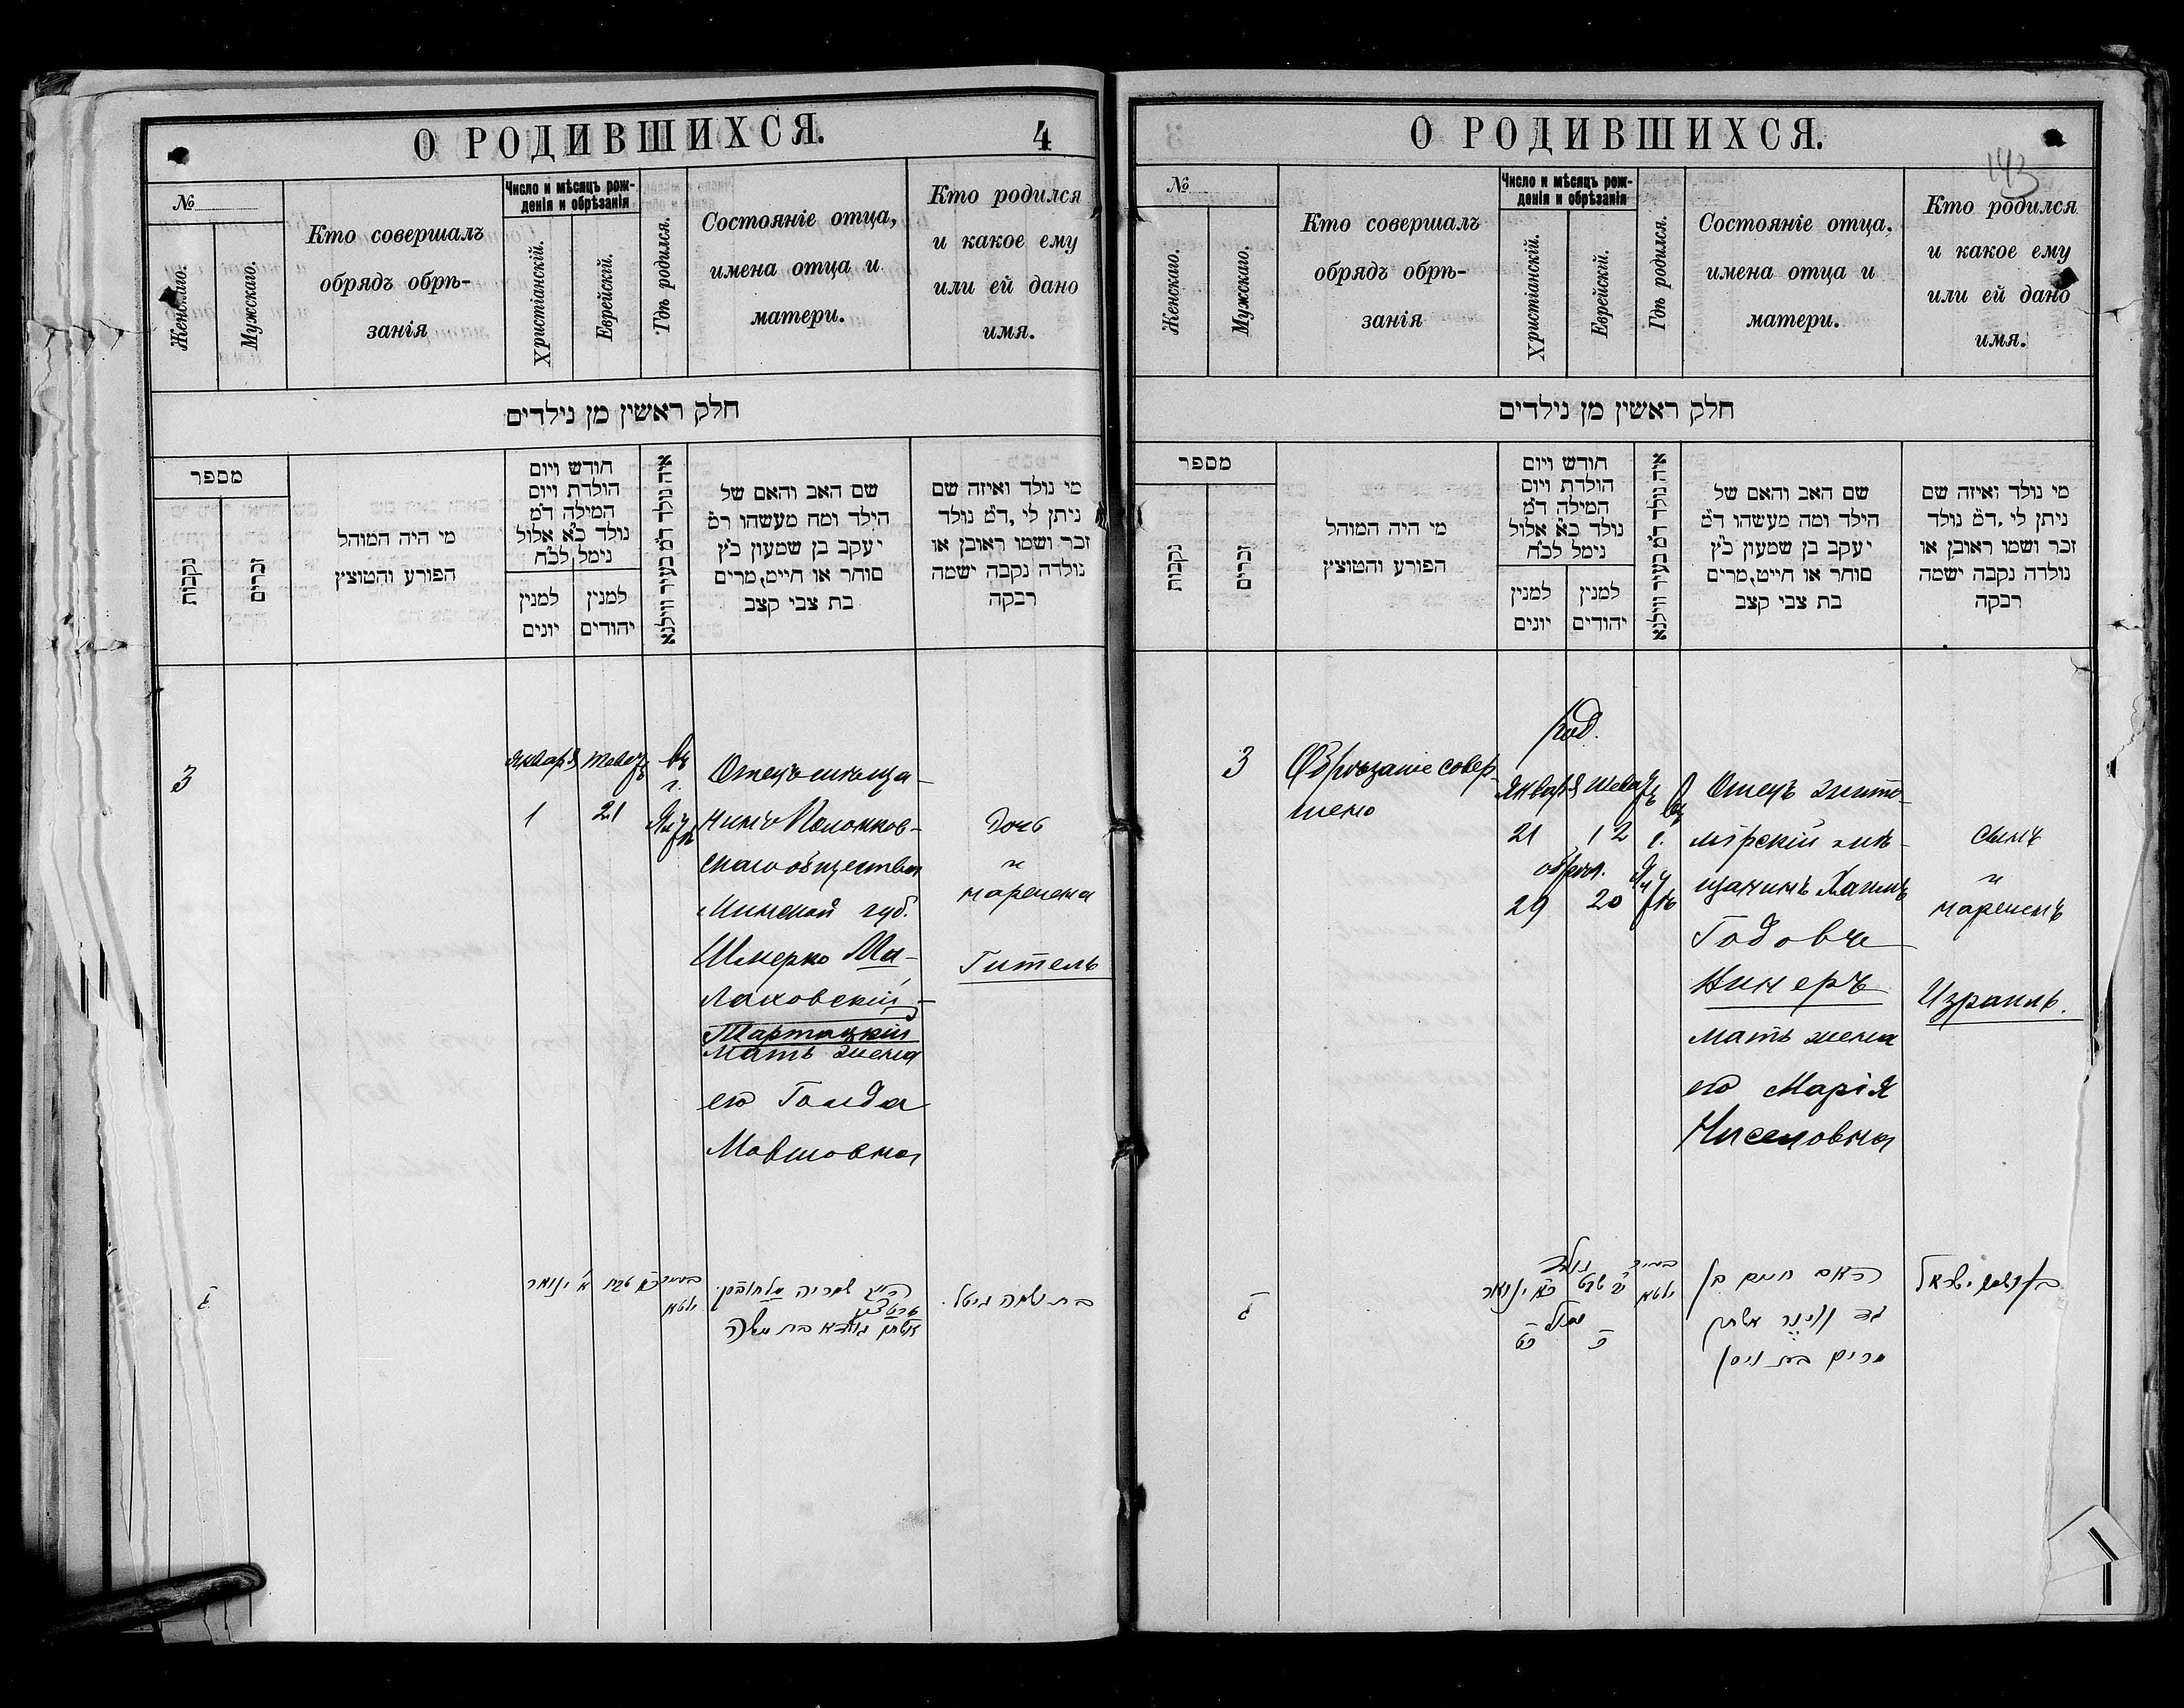 О РОДИВШИХСЯ. 4
№
Женскаго.
Мужскаго.
Кто совершалъ
обрядъ обрѣ-
занія
Число и мѣсяцъ рож-
денія и обрѣзанія
Христіанскій.
Еврейскій.
Гдѣ родился.
Состояніе отца,
имена отца и
матери.
Кто родился
и какое ему
или ей дано
имя.
חלק ראשין מן נילדים
מספר
נקבות
זכרים
מי היה המוהל
הפורע והמוצץ
חודש ויום
הולדת ויום
המילה ד״מ
נולד כ״א אלול
נימל לכ״ח
למנין
יונים
למנין
יהודים
איה נולד ד״מ בעיר ווילנא
שם האב והאם של
הילד ומה מעשהו ד״מ
יעקב בן שמעון כ״ץ
סוחר או חייט, מרים
בת צבי קצב
מי נולד ואיזה שם
ניתן לי, ד״מ נולד
זכר ושמו ראובן או
נולדה נקבה ישמה
רבקה
3
Января
1
21
въ
г.
Отецъ мѣща-
нинъ
скаго общества
Минской губ.
Шмерко Ма-
лаховскій-
мать жена
его Голда
Мовшовна
Дочь
и
наречена
Гитель
О РОДИВШИХСЯ.
143
№
Женскаго.
Мужскаго.
Кто совершалъ
обрядъ обрѣ-
занія
Число и мѣсяцъ рож-
денія и обрѣзанія
Христіанскій.
Еврейскій.
Гдѣ родился.
Состояніе отца,
имена отца и
матери.
Кто родился
и какое ему
или ей дано
имя.
חלק ראשין מן נילדים
מספר
נקבות
זכרים
מי היה המוהל
הפורע והמוצץ
חודש ויום
הולדת ויום
המילה ד״מ
נולד כ״א אלול
נימל לכ״ח
למנין
יונים
למנין
יהודים
איה נולד ד״מ בעיר ווילנא
שם האב והאם של
הילד ומה מעשהו ד״מ
יעקב בן שמעון כ״ץ
סוחר או חייט, מרים
בת צבי קצב
מי נולד ואיזה שם
ניתן לי, ד״מ נולד
זכר ושמו ראובן או
נולדה נקבה ישמה
רבקה
3
Обрѣзаніе совер-
шено
род.
Января
21
12
29
20
Отецъ жито-
мірскій мѣ-
щанинъ Хаимъ
мать жена
его Марія
Сынъ
и
нареченъ
Израиль.